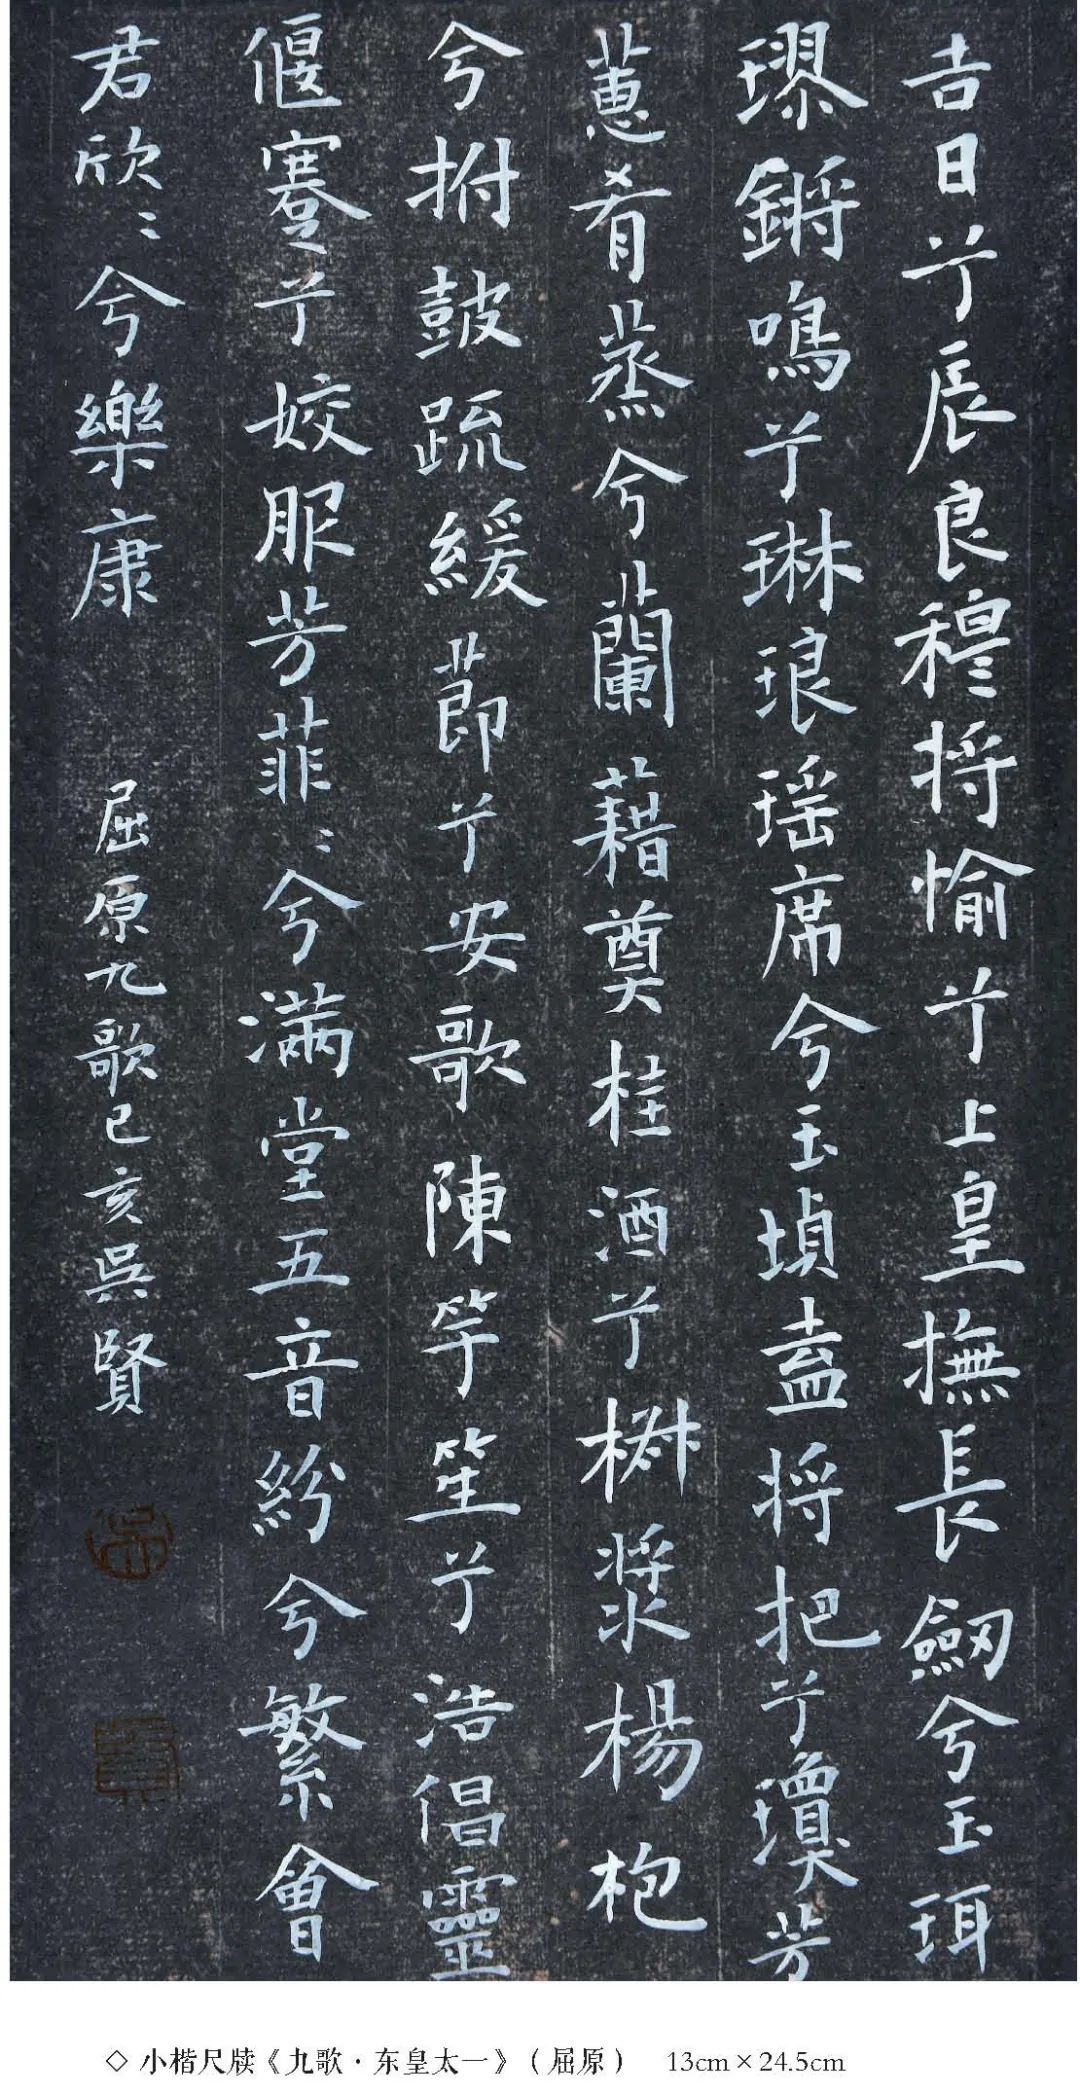 吉日兮辰良穆将愉兮上皇撫長劔兮玉珥
璆鏘鳴兮琳琅瑶席兮玉瑱盍将把兮瓊芳
蕙肴蒸兮蘭藉奠桂酒兮椒漿楊枹
兮拊鼓疏緩節兮安歌陳竽笙兮浩倡靈
偃蹇兮姣服芳菲〻兮满堂五音紛兮繁會
君欣〻兮樂康 屈原九歌己亥吳賢
◇ 小楷尺牍《九歌·东皇太一》（屈原） 13cm × 24.5cm